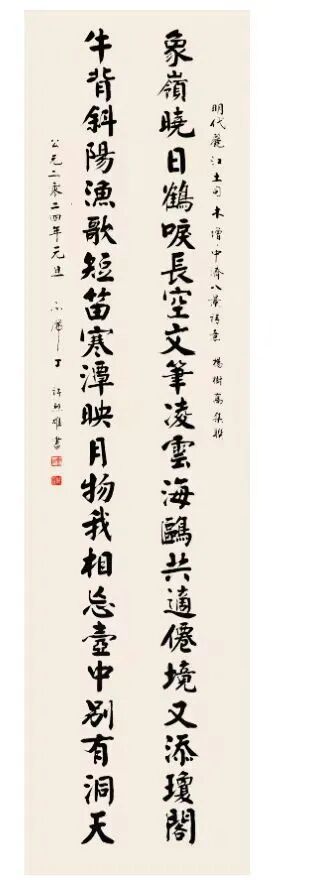 明代麗江土司木增·中濟八景詩意 楊樹高集聯
象嶺曉日鶴唳長空文筆凌雲海鷗共適僊境又添瓊閣
牛背斜陽漁歌短笛寒潭映月物我相忘壺中别有洞天
公元二零二四年元旦 許 雄書